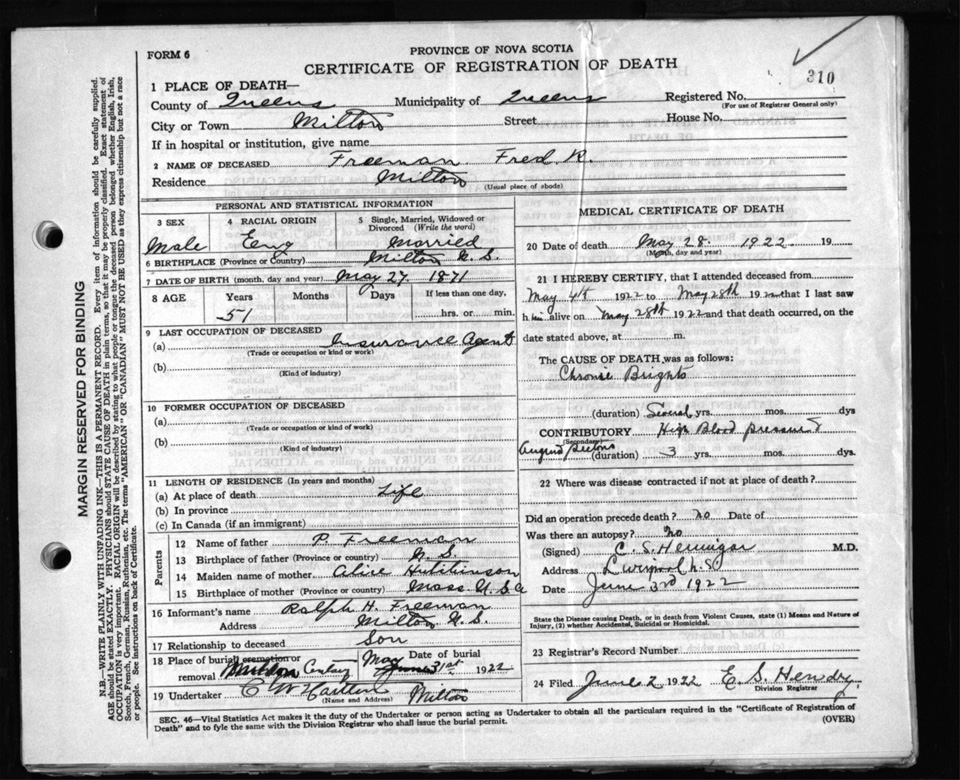 310
FORM 6
PROVINCE OF NOVA SCOTIA
CERTIFICATE OF REGISTRATION OF DEATH
1 PLACE OF DEATH—
County of Queens Municipality of Queens Registered No.
(For use of Registrar General only)
City or Town Milton Street House No.
If in hospital or institution, give name
2 NAME OF DECEASED Freeman Fred. R.
Residence Milton
(Usual place of abode)
PERSONAL AND STATISTICAL INFORMATION
3 SEX 4 RACIAL ORIGIN 5 Single, Married, Widowed or Divorced (Write the word)
Male Eng Married
6 BIRTHPLACE (Province or Country) Milton N. S.
7 DATE OF BIRTH (month, day and year) May 27. 1871
8 AGE Years Months Days If less than one day,
51 hrs. or min.
9 LAST OCCUPATION OF DECEASED
(a) Insurance Agent
(Trade or occupation or kind or work)
(b)
(Kind of industry)
10 FORMER OCCUPATION OF DECEASED
(a)
(Trade or occupation or kind of work)
(b)
(Kind of industry)
11 LENGTH OF RESIDENCE (In years and months)
(a) At place of death Life
(b) In province
(c) In Canada (if an immigrant)
Parents
12 Name of father P. Freeman
13 Birthplace of father (Province or country) N. S.
14 Maiden name of mother Alice Hutchinson
15 Birthplace of mother (Province or country) Mass. U.S.A
16 Informant's name Ralph H. Freeman
Address Milton N. S.
17 Relationship to deceased Son
18 Place of burial cremation or Date of burial
removal Milton May 31st 1922
19 Undertaker Milton
(Name and Address)
MEDICAL CERTIFICATE OF DEATH
20 Date of death May 28. 1922 19
(Month, day and year)
21 I HEREBY CERTIFY, that I attended deceased from
May 4th 1922 to May 28th 1922 that I last saw
him alive on May 28th 1922 and that death occurred, on the
date stated above, at m.
The CAUSE OF DEATH was as follows:
Chronic Brights
(duration) Several yrs. mos. dys
CONTRIBUTORY High Blood pressure &
(Secondary)
Angina Pectoris (duration) 3 yrs. mos. dys.
22 Where was disease contracted if not at place of death?
Did an operation precede death? no Date of
Was there an autopsy? No
(Signed) C. S. M.D.
Address Liverpool N.S.
Date June 3rd 1922
State the Disease causing Death, or in death from Violent Causes, state (1) Means and Nature of
Injury, (2) whether Accidental, Suicidal or Homicidal.
23 Registrar's Record Number
24 Filed June 2 1922 E. S. Hendry.
Division Registrar
SEC. 46—Vital Statistics Act makes it the duty of the Undertaker or person acting as Undertaker to obtain all the particulars required in the "Certificate of Registration of
Death" and to fyle the same with the Division Registrar who shall issue the burial permit.
(OVER)
MARGIN RESERVED FOR BINDING
N.B.—WRITE PLAINLY WITH UNFADING INK—THIS IS A PERMANENT RECORD. Every item of information should be carefully supplied.
AGE should be stated EXACTLY. PHYSICIANS should STATE CAUSE OF DEATH in plain terms, so that it may be properly classified. Exact statement of
OCCUPATION is very important. RACIAL ORIGIN will be described by stating to what people or tongue the deceased person belonged whether English, Irish,
Scotch, French, German, Russian, Ruthenian, etc. The terms "AMERICAN" OR "CANADIAN" MUST NOT BE USED as they express citizenship but not a race
or people. See instructions on back of Certificate.